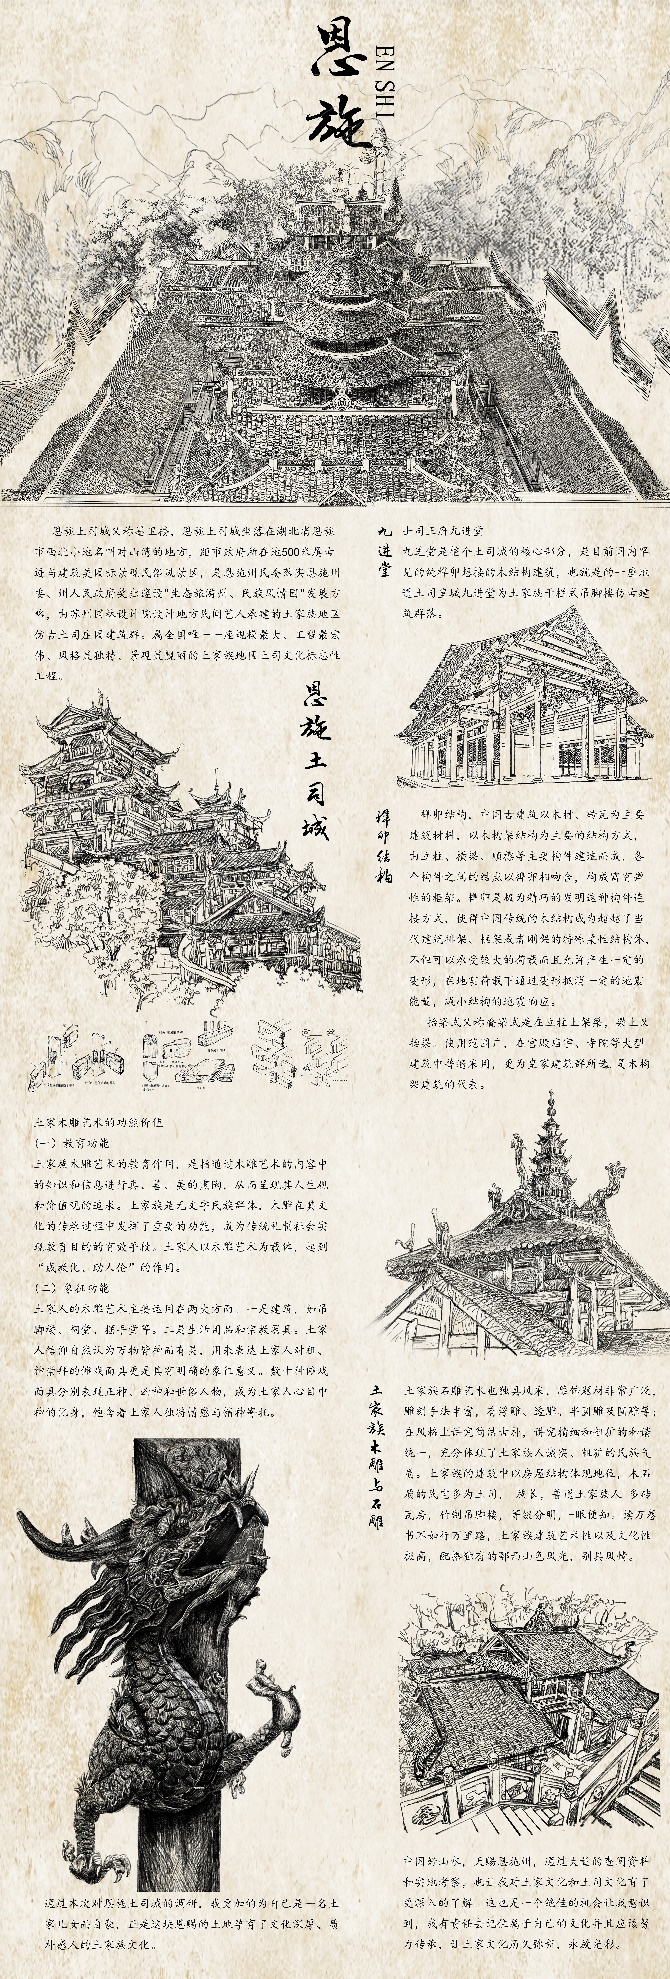 恩施
EN SHI
恩施土司城又称墨卫楼，恩施土司城坐落在湖北省恩施
市西北小地名叫对山湾的地方，距市政府所在地500米属女
委、州人民政府
仿古土司庄园建筑群。属全国唯一一座规模最大、工程最宏
伟、风格最独特、景观最靓丽的土家族地区土司文化标志性
工程。
恩施土司城
九进堂
土司王府九进堂
九进堂是整个土司城的核心部分，是目前国内罕
见的纯榫卯连接的木结构建筑，也就是
道土司皇城九进堂为土家族干栏式吊脚楼仿古建
筑群落。
榫卯结构
榫卯结构，中国古建筑以木材、砖瓦为主要
建筑材料，以木构架结构为主要的结构方式，
由立柱、横梁、顺檩等主要构件建造而成，各
个构件之间的结点以榫卯相吻合，构成富有弹
性的框架。榫卯是极为精巧的发明这种构件连
接方式，使得中国传统的木结构成为超越了当
代建筑排架、框架或者刚架的特殊柔性结构体，
不但可以承受较大的荷载而且允许产生一定的
变形，在地震荷载下通过变形抵消一定的地震
能量，减小结构的地震响应。
抬梁式又称叠梁式是在立柱上架梁，梁上又
抬梁，使用范围广，在宫殿庙宇、寺院等大型
建筑中普遍采用，更为皇家建筑群所选，是木构
架建筑的代表。
土家木雕艺术的功能价值
（一）教育功能
土家族木雕艺术的教育作用，是指通过木雕艺术的内容中
的知识和信息进行真、善、美的熏陶，从而呈现其人生观
和价值观的追求。土家族是无文字民族群体，木雕在其文
化的传承过程中发挥了重要的功能，成为传统礼制社会实
现教育目的的有效手段。土家人以木雕艺术为载体，起到
“成教化、助人伦”的作用。
（二）象征功能
土家人的木雕艺术主要运用在两大方面，一是建筑，如吊
脚楼、祠堂、摆手堂等。二是生活用品和宗教器具。土家
人信仰自然认为万物皆神而有灵，用来表达土家人对祖、
神崇拜的傩戏面具更是具有明确的象征意义。数十种傩戏
面具分别表现正神、凶神和世俗人物，成为土家人心目中
神的化身，饱含着土家人独特情感与精神寄托。
土家族木雕与石雕
土家族石雕艺术也独具风采，装饰题材非常广泛，
雕刻手法丰富，有浮雕、透雕、半圆雕及阴雕等；
在风格上讲究简洁古朴，讲究精细和粗犷的和谐
统一，充分体现了土家族人诚实、粗犷的民族气
质。土家族的建筑中以房屋结构体现地位，木石
瓦房，竹制吊脚楼，等级分明，一眼便知。读万卷
书不如行万里路，土家族建筑艺术性以及文化性
极高，配弥独有的鄂西山色风光，别具风情。
通过本次对恩施土司城的调研，我更加的为自己是一名土
家儿女而自豪，正是这块恩赐的土地孕育了文化深厚、质
朴感人的土家族文化。
中国好山水，天赐恩施州，通过大量的查阅资料
和实地考察，也让我对土家文化和土司文化有了
更深入的了解，这也是一个绝佳的机会让我意识
到，我有责任去记住属于自己的文化并且应该努
力传承，让土家文化历久弥新，永放光彩。